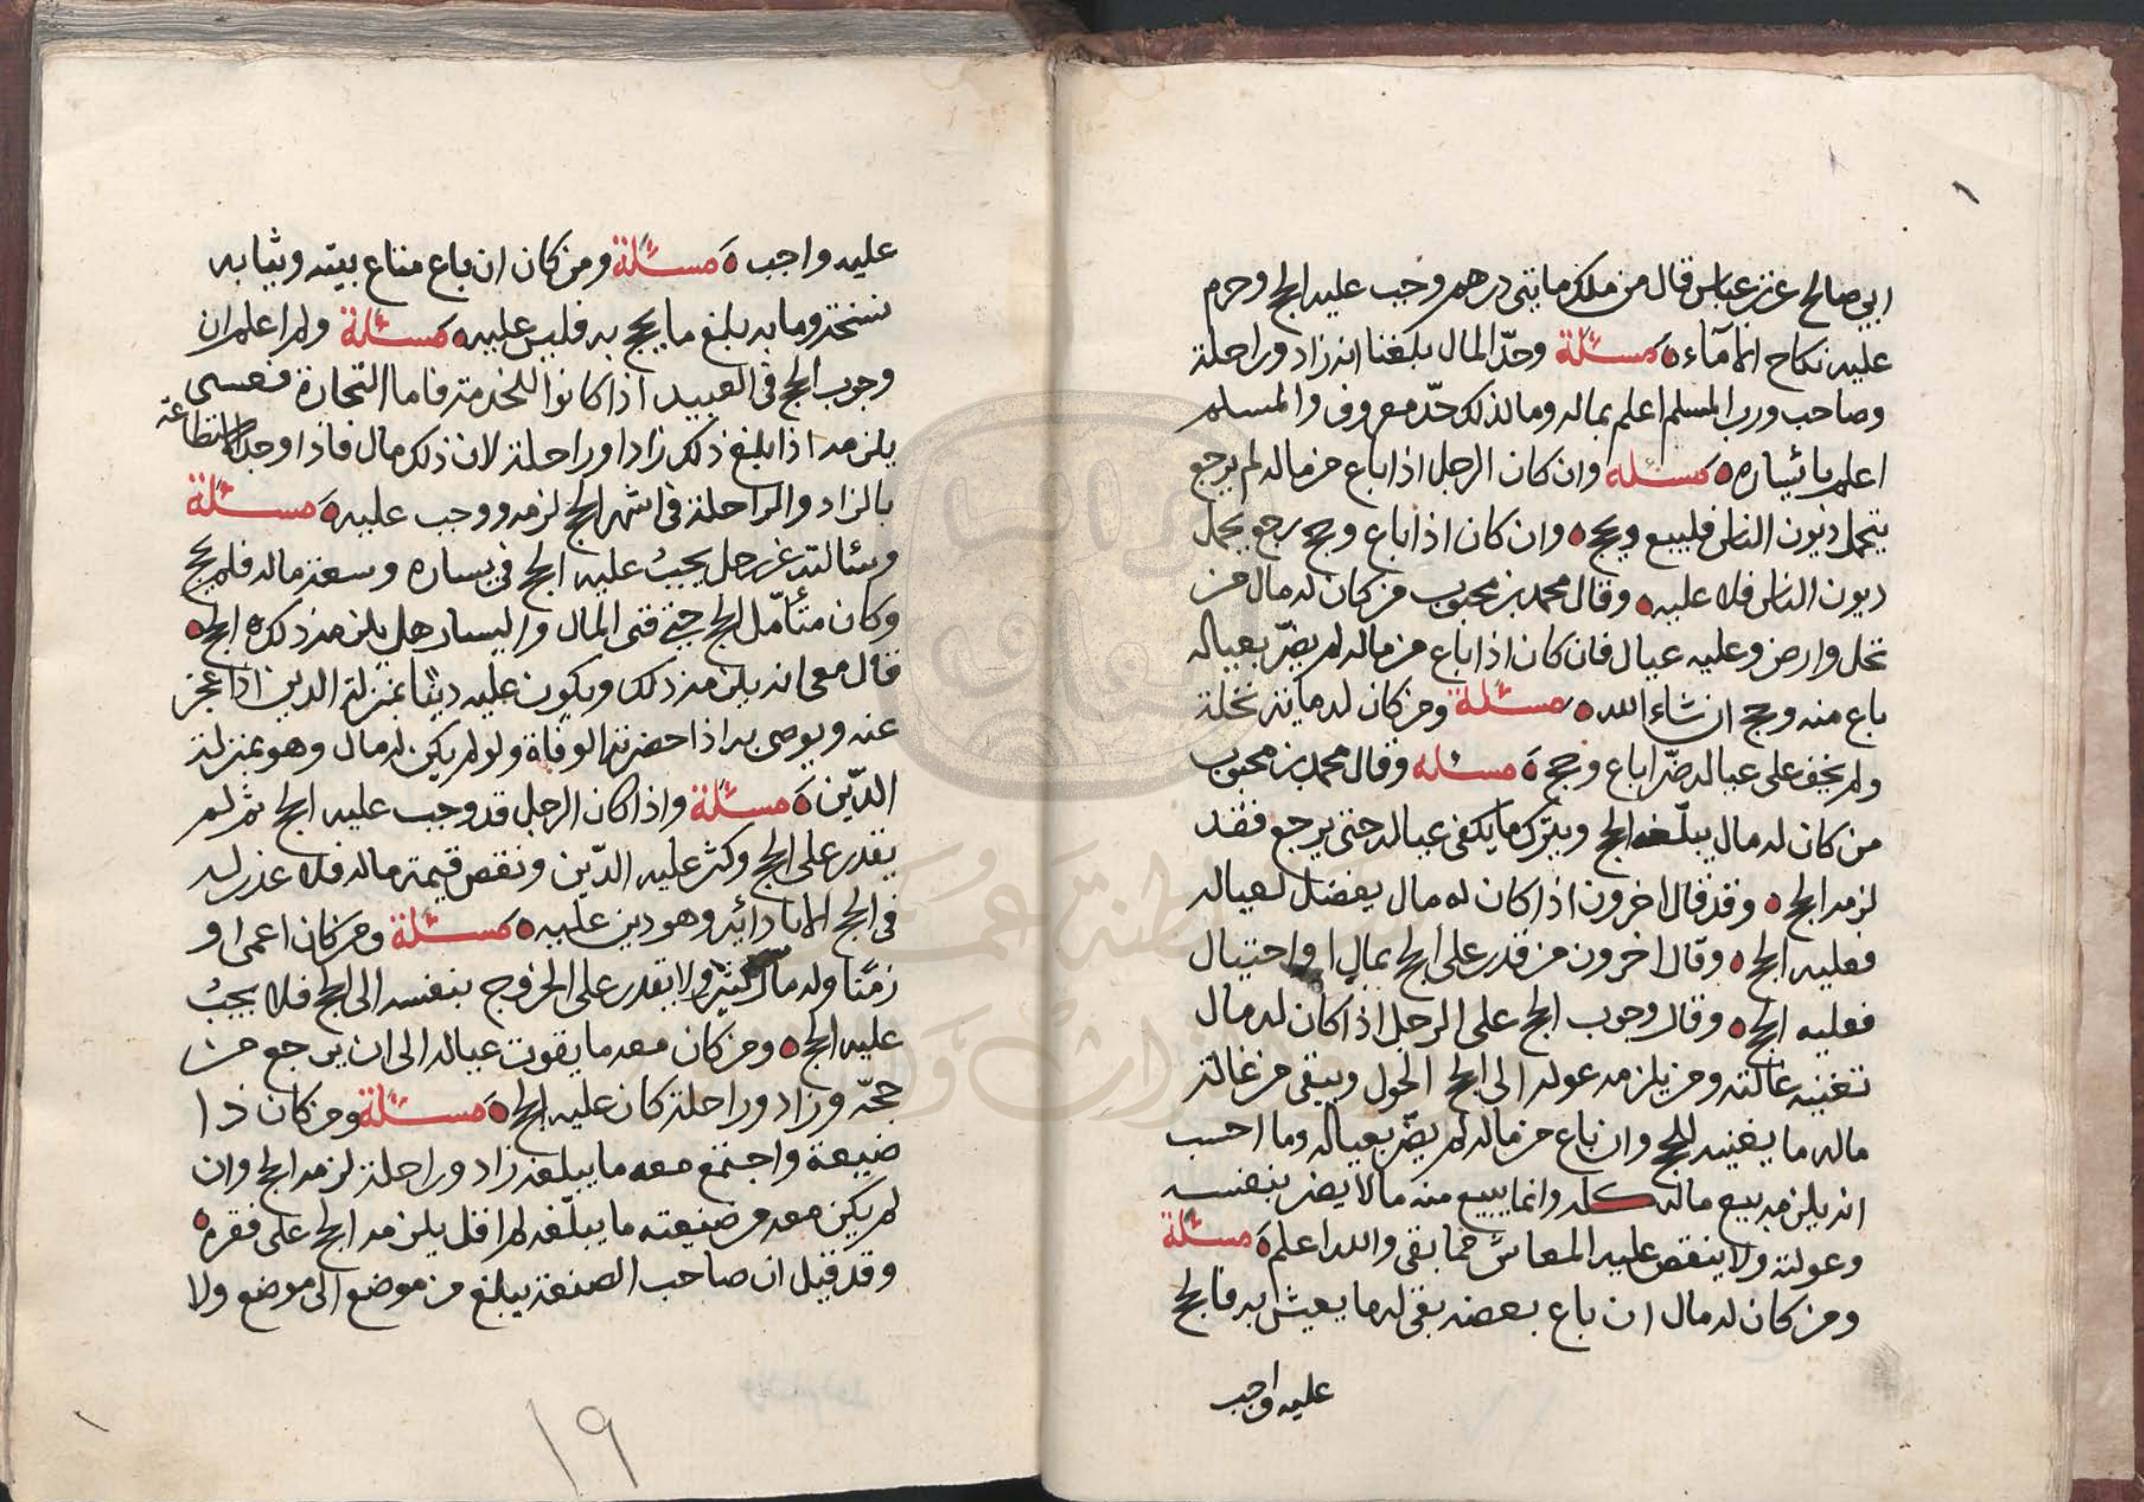 ابي صالح عن بن عباس قال من ملك مايتي درهم وجب عليه الحج وحرم
عليه نكاح الامآء ه مسئلة وحدّ المال بلغنا انه زاد وراحلة
وصاحب ورب المسلم اعلم بماله وما لذلك حدّ معروف والمسلم
اعلم بائيساره ه مسئله وان كان الرجل اذا باع من ماله لم يرجع
يتحمل ديون الناس فليبيع ويحج ه وان كان اذا باع وحج يرجع يحمل
ديون الناس فلا عليه ه وقال محمد بن محبوب من كان له مال من
نخل وارض وعليه عيال فان كان اذا باع من ماله لم يضرّ بعياله
باع منه وحج ان شاء الله ه مسئلة ومن كان له مائة نخلة
ولم يخف على عياله ضرّا باع وحج ه مسئله وقال محمد بن محبوب
من كان له مال يبلّغه الحج ويترك ما يكفي عياله حتى يرجع فقد
لزمه الحج ه وقد قال اخرون اذا كان له مال يفضل لعياله
فعليه الحج ه وقال اخرون من قدر على الحج بمال او احتيال
فعليه الحج ه وقال وجوب الحج على الرجل اذا كان له مال
تغنيه غالته ومن يلزمه عوله الى الحج الحول ويبقى من غالة
ماله ما يغنيه للحج وان باع من ماله لم يضرّ بعياله وما احسب
انه يلزمه بيع ماله كله وانما يبيع منه ما لا يضر بنفسه
وعولته ولا ينقص عليه المعاش فما بقي والله اعلم ه مسئلة
ومن كان له مال ان باع بعضه بقي له ما يعيش به فالحج
عليه واجب
عليه واجب ه مسئلة ومن كان ان باع متاع بيته وثيابه
وما به بلغ ما يحج به فليس عليه ه مسئلة ولم اعلم ان
وجوب الحج في العبيد اذا كانوا للخدمة فاما التجارة فعسى
يلزمه اذا بلغ ذلك زادا وراحلة لان ذلك مال فاذا وجد الاستطاعة
بالزاد والراحلة في اشهر الحج لزمه ووجب عليه ه مسئلة
وسئالته عن رجل يجبُ عليه الحج في يساره وسعة ماله فلم يحج
وكان متأمّل الحج حتى فنى المال واليسار هل يلزمه ذلك الحج ه
قال معي انه يلزمه ذلك ويكون عليه دينا بمنزلة الدين اذا عجز
عنه ويوصي به اذا حضرته الوفاة ولو لم يكن له مال وهو بمنزلة
الدّين ه مسئلة واذا كان الرجل قد وجب عليه الحج ثم لم
يقدر على الحج وكثر عليه الدّين ونقص قيمة ماله فلا عذر له
في الحج الا بادائه وهو دين عليه ه مسئلة ومن كان اعمى او
زمنًا وله مال كثير ولا يقدر على الخروج بنفسه الى الحج فلا يجبُ
عليه الحج ه ومن كان معه ما يقوت عياله الى ان يرجع من
حجّه وزاد وراحلة كان عليه الحج ه مسئلة ومن كان ذا
ضيعة واجتمع معه ما يبلغه زاد وراحلة لزمه الحج وان
لم يكن معه من ضيعته ما يبلّغه لم اقل يلزمه الحج على فقره ه
وقد قيل ان صاحب الصنعة يبلغ من موضع الى موضع ولا
١٩